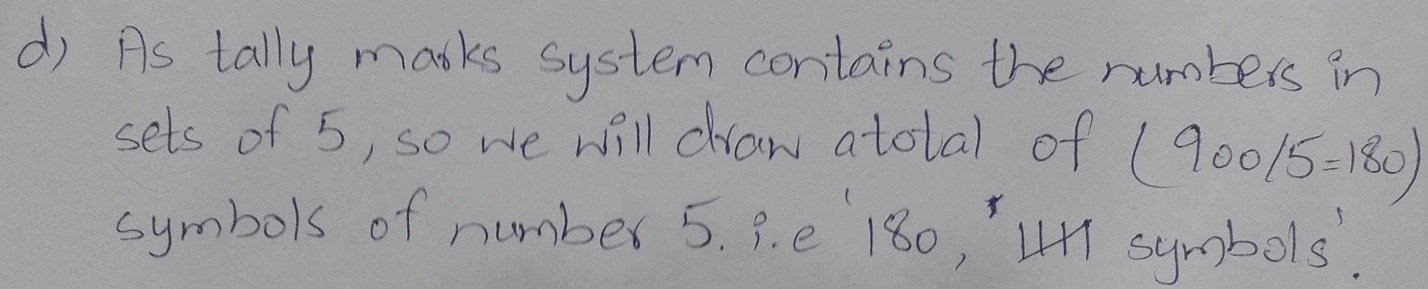 d) As tally marks system contains the numbers in
sets of 5, so we will draw a total of (900/5=180)
symbols of number 5. i.e '180, " 𝍸 symbols'.